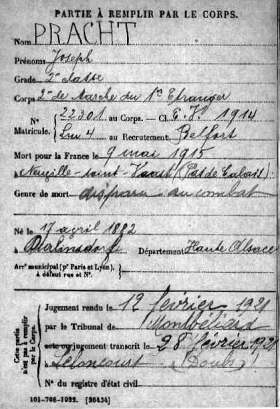 PARTIE À REMPLIR PAR LE CORPS.
Nom PRACHT
Prénoms Joseph
Grade 2e classe
Corps 2e de Marche du 1er Etranger
N° 22301 au Corps. — Cl. 1914
Matricule. au Recrutement Belfort
Mort pour la France le 9 mai 1915
à Neuville-Saint-Vaast (Pas de Calais)
Genre de mort disparu au combat
Né le 17 avril 1882
à Département Haute Alsace
Arrt municipal (pr Paris et Lyon),
à défaut rue et N°.
Cette partie
n'est pas à remplir
par le Corps.
Jugement rendu le 12 février 1921
par le Tribunal de Montbéliard
acte ou jugement transcrit le 28 février 1921
à Seloncourt (Doubs)
N° du registre d'état civil
101-708-1922. [26434]